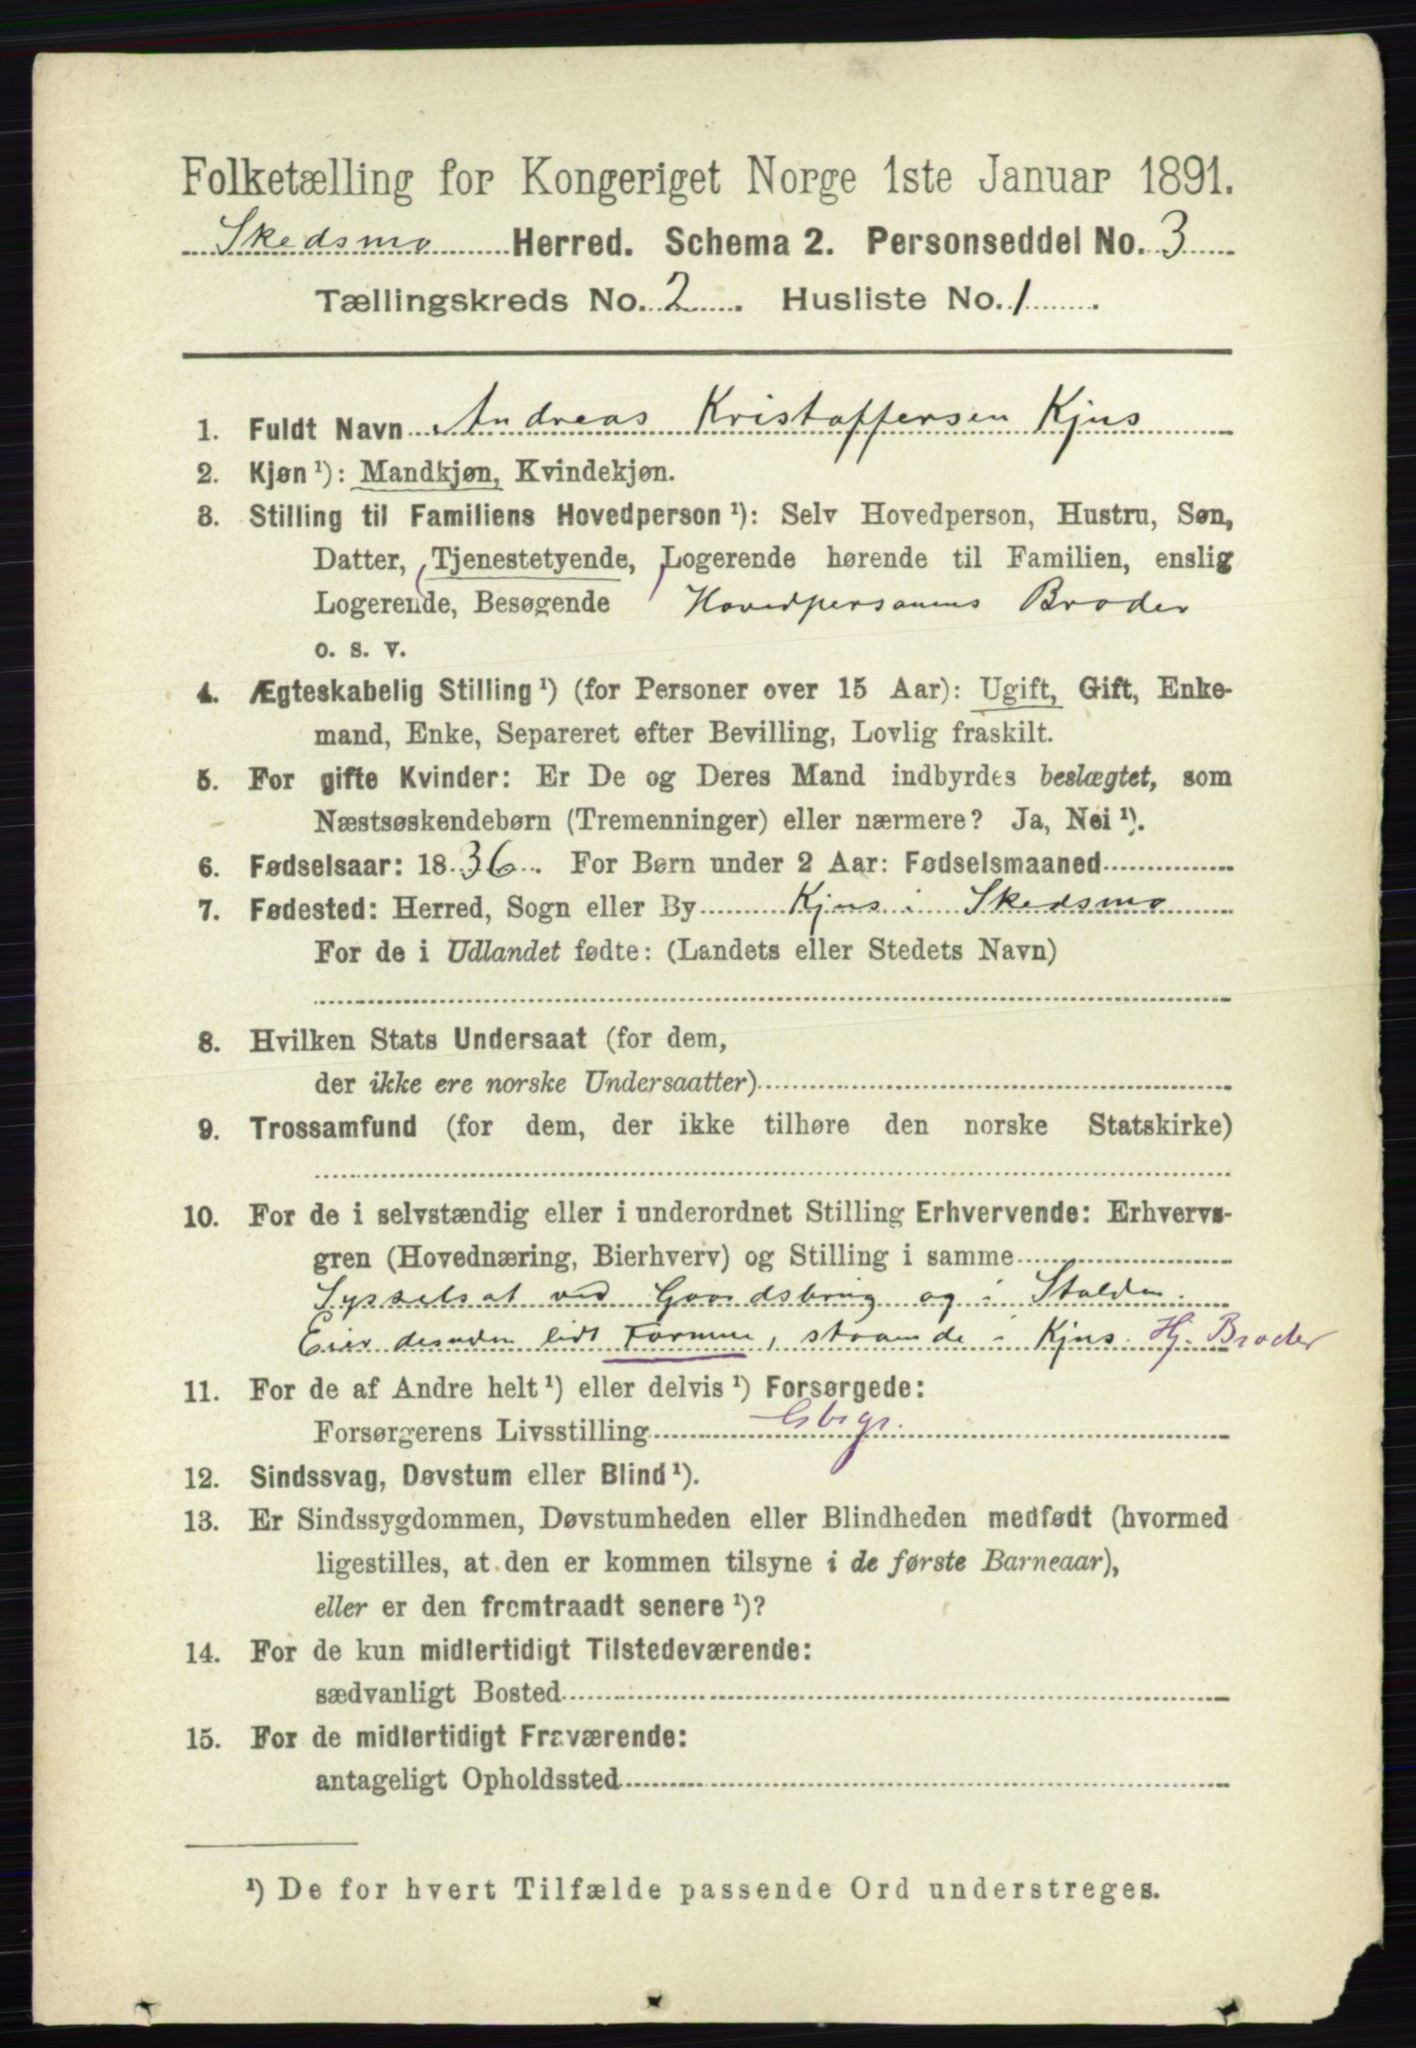 Folketælling for Kongeriget Norge 1ste Januar 1891.
Skedsmo Herred. Schema 2. Personseddel No. 3
Tællingskreds No. 2. Husliste No. 1.
1. Fuldt Navn Andreas Kristoffersen Kjus
2. Kjøn ¹): Mandkjøn, Kvindekjøn.
3. Stilling til Familiens Hovedperson ¹): Selv Hovedperson, Hustru, Søn,
Datter, (Tjenestetyende,) Logerende hørende til Familien, enslig
Logerende, Besøgende Hovedpersonens Broder
o. s. v.
4. Ægteskabelig Stilling ¹) (for Personer over 15 Aar): Ugift, Gift, Enke-
mand, Enke, Separeret efter Bevilling, Lovlig fraskilt.
5. For gifte Kvinder: Er De og Deres Mand indbyrdes beslægtet, som
Næstsøskendebørn (Tremenninger) eller nærmere? Ja, Nei ¹).
6. Fødselsaar: 1836. For Børn under 2 Aar: Fødselsmaaned
7. Fødested: Herred, Sogn eller By Kjus i Skedsmo
For de i Udlandet fødte: (Landets eller Stedets Navn)
8. Hvilken Stats Undersaat (for dem,
der ikke ere norske Undersaatter)
9. Trossamfund (for dem, der ikke tilhøre den norske Statskirke)
10. For de i selvstændig eller i underordnet Stilling Erhvervende: Erhvervs-
gren (Hovednæring, Bierhverv) og Stilling i samme
Sysselsat ved Gaardsbrug og i Stalden.
Eier desuden lidt Formue, staaende i Kjus. Hj. Broder
11. For de af Andre helt ¹) eller delvis ¹) Forsørgede:
Forsørgerens Livsstilling Gbrgr.
12. Sindssvag, Døvstum eller Blind ¹).
13. Er Sindssygdommen, Døvstumheden eller Blindheden medfødt (hvormed
ligestilles, at den er kommen tilsyne i de første Barneaar),
eller er den fremtraadt senere ¹)?
14. For de kun midlertidigt Tilstedeværende:
sædvanligt Bosted
15. For de midlertidigt Fraværende:
antageligt Opholdssted
¹) De for hvert Tilfælde passende Ord understreges.